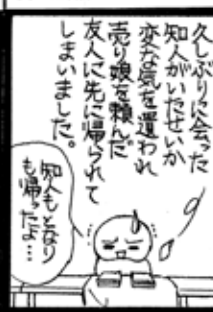 久しぶりに会った
知人がいたせいか
変な気を遣われ
売り娘を頼んだ
友人に先に帰られて
しまいました。
知人もとなり
も帰ったよ…